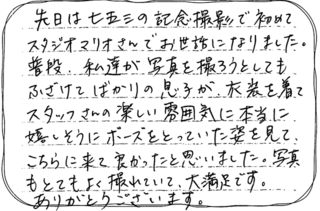 先日は七五三の記念撮影で初めて
スタジオマリオさんでお世話になりました。
普段、私達が写真を撮ろうとしても
ふざけてばかりの息子が、衣装を着て
スタッフさんの楽しい雰囲気に本当に
嬉しそうにポーズをとっていた姿を見て、
こちらに来て良かったと思いました。写真
もとてもよく撮れていて、大満足です。
ありがとうございます。